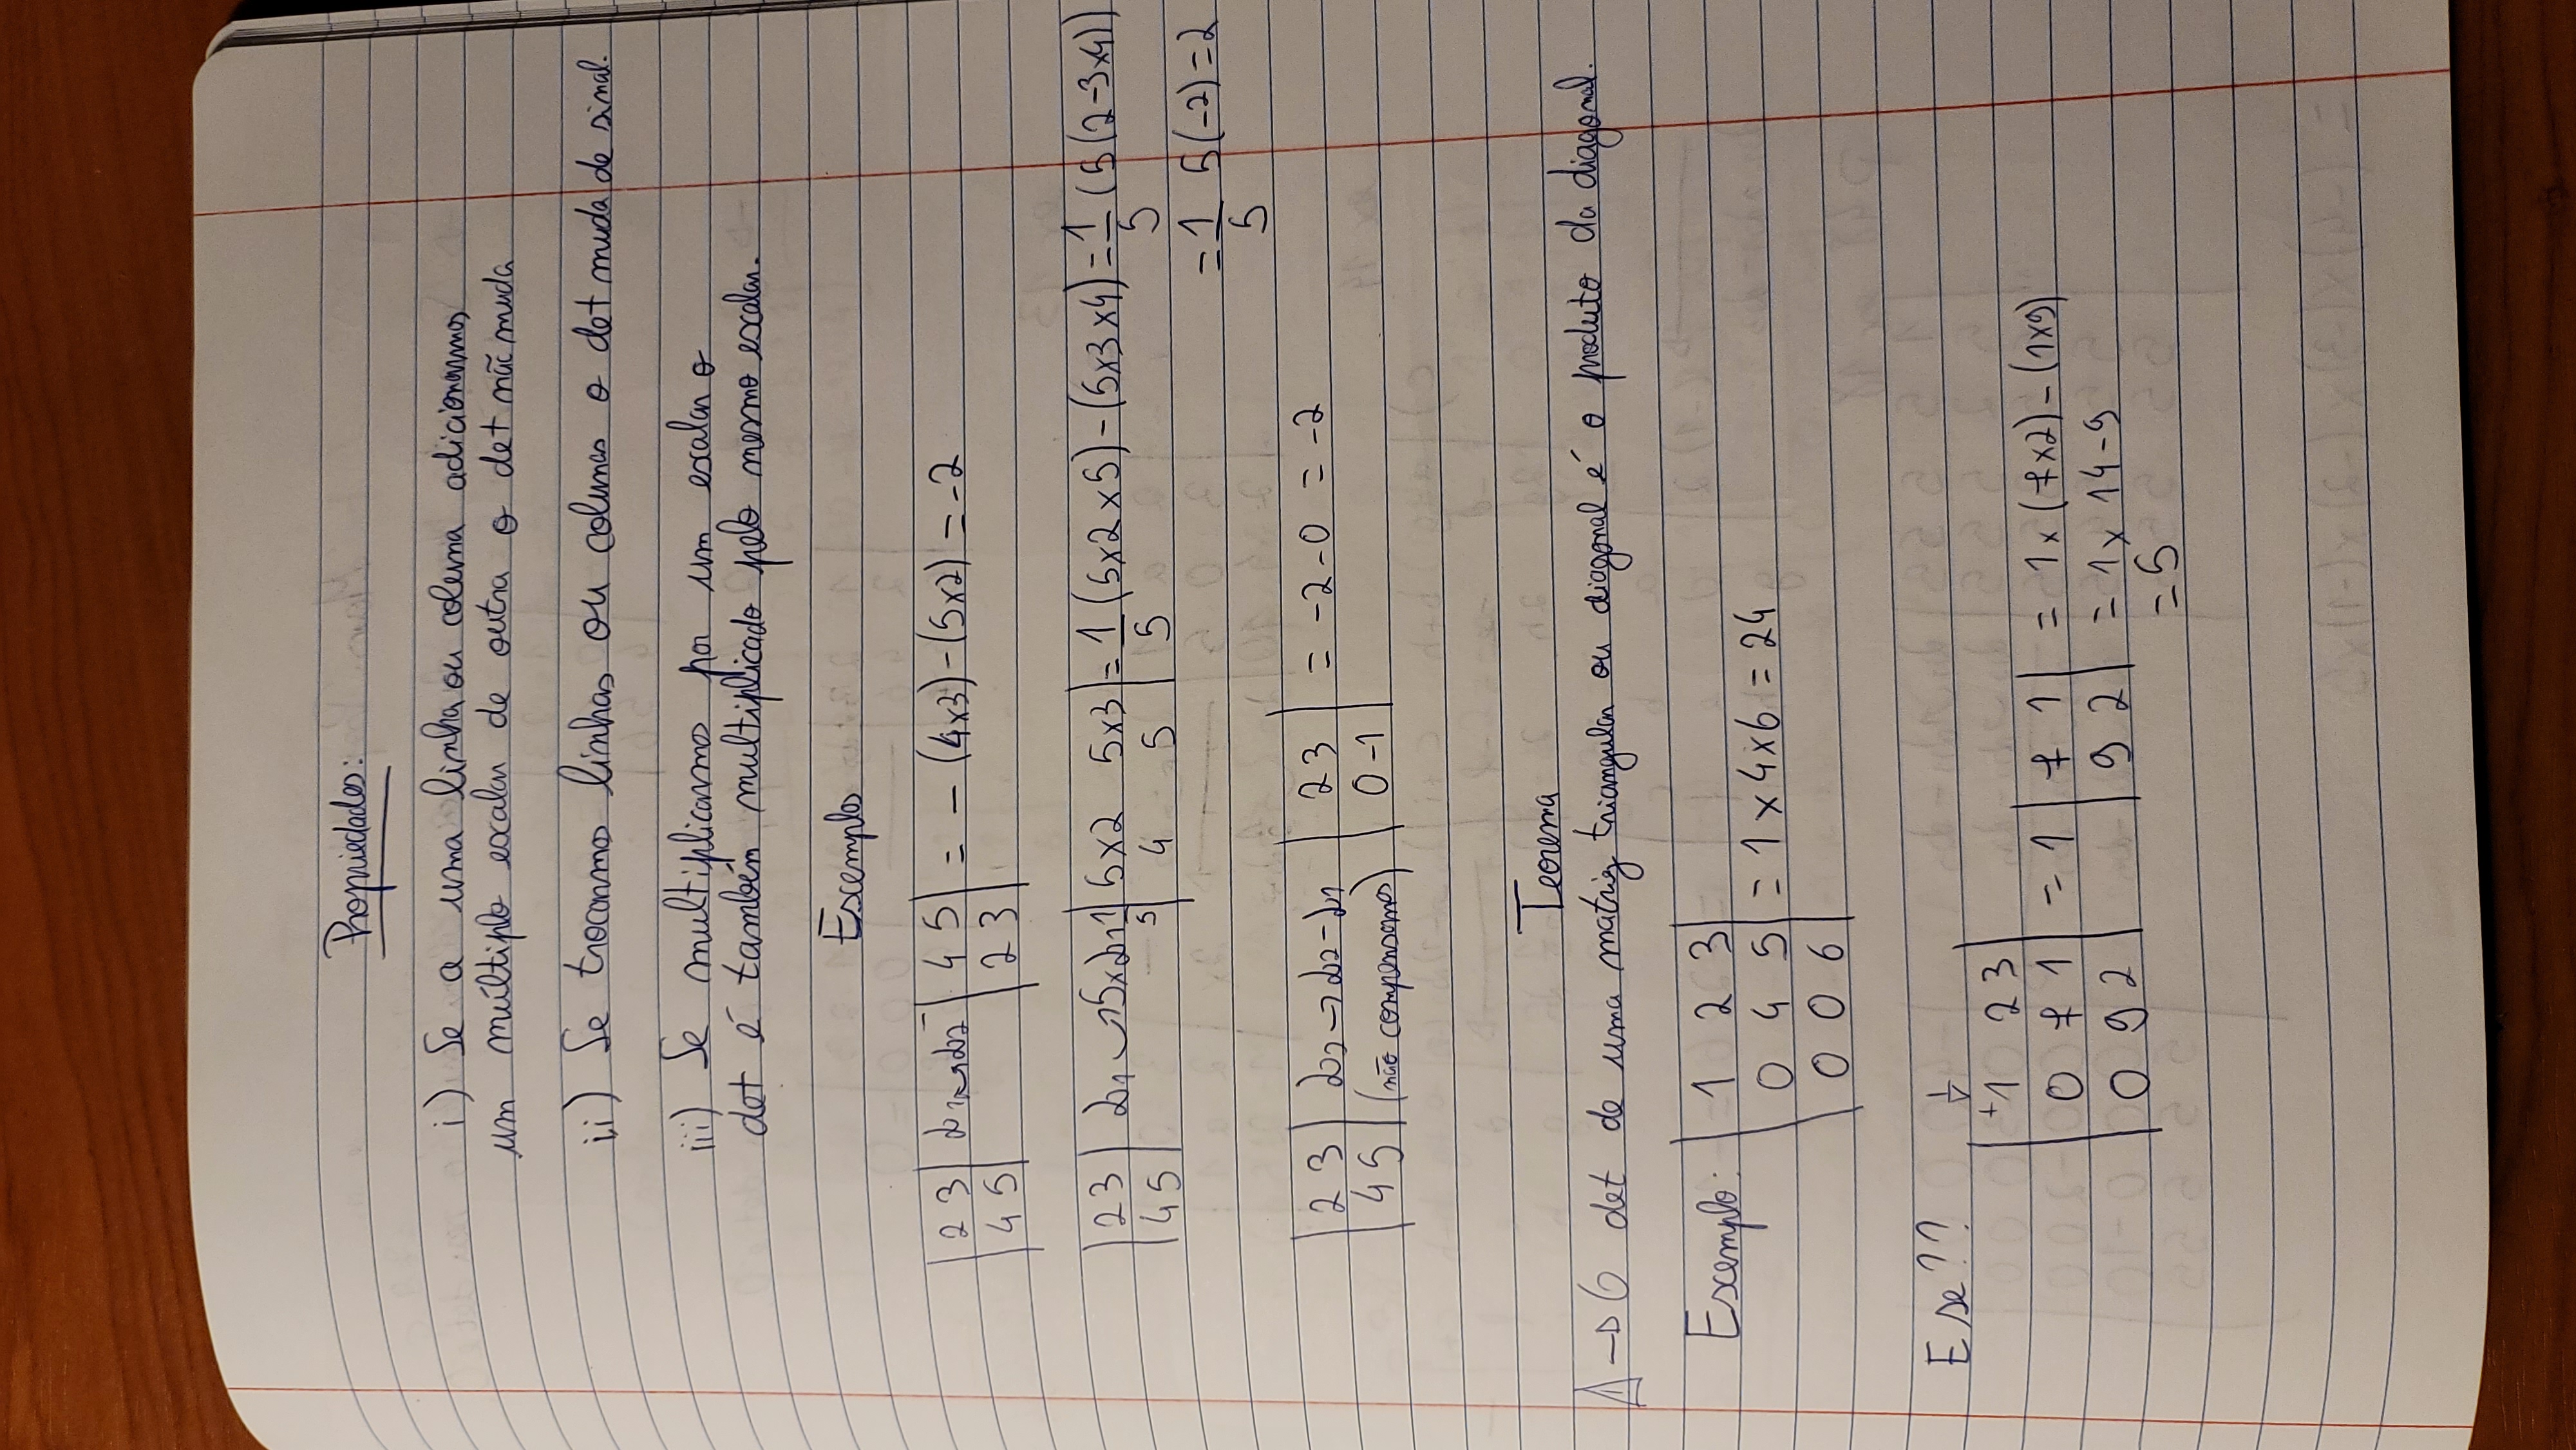 Propriedades:
i) Se a uma linha ou coluna adicionarmos
um múltiplo escalar de outra o det não muda
ii) Se trocarmos linhas ou colunas o det muda de sinal.
iii) Se multiplicarmos por um escalar o
det é também multiplicado pelo mesmo escalar.
Exemplos
|2 3| L1↔L2 -|4 5| = - (4x3)-(5x2) = -2
|4 5| |2 3|
|2 3| L1→5xL1 1/5 |5x2 5x3| = 1/5 (5x2x5)-(5x3x4) = 1/5 (5(2-3x4))
|4 5| |4 5|
= 1/5 5(-2)=2
|2 3| L2→L2-L1 |2 3| = -2-0 = -2
|4 5| (não compensamos) |0 -1|
Teorema
⚠ → O det de uma matriz triangular ou diagonal é o produto da diagonal.
Exemplo: |1 2 3|
|0 4 5| = 1x4x6 = 24
|0 0 6|
E se?? ↓
|+1 2 3|
|0 7 1| = 1 |7 1| = 1x(7x2)-(1x9)
|0 9 2| |9 2| = 1x 14-9
= 5